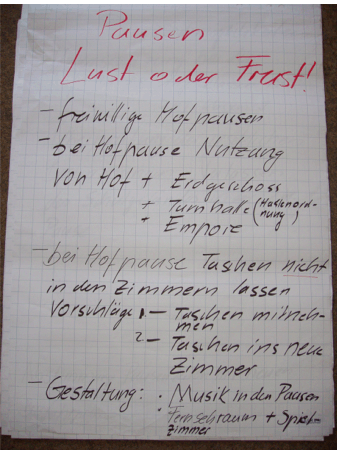 Pausen
Lust oder Frust!
- freiwillige Hofpausen
- bei Hofpause Nutzung
von Hof + Erdgeschoss
+ Turnhalle (Hallenord-
nung)
+ Empore
- bei Hofpause Taschen nicht
in den Zimmern lassen
Vorschläge 1 - Taschen mitneh-
men
2 - Taschen ins neue
Zimmer
- Gestaltung: · Musik in den Pausen
· Fernsehraum + Spiel-
zimmer